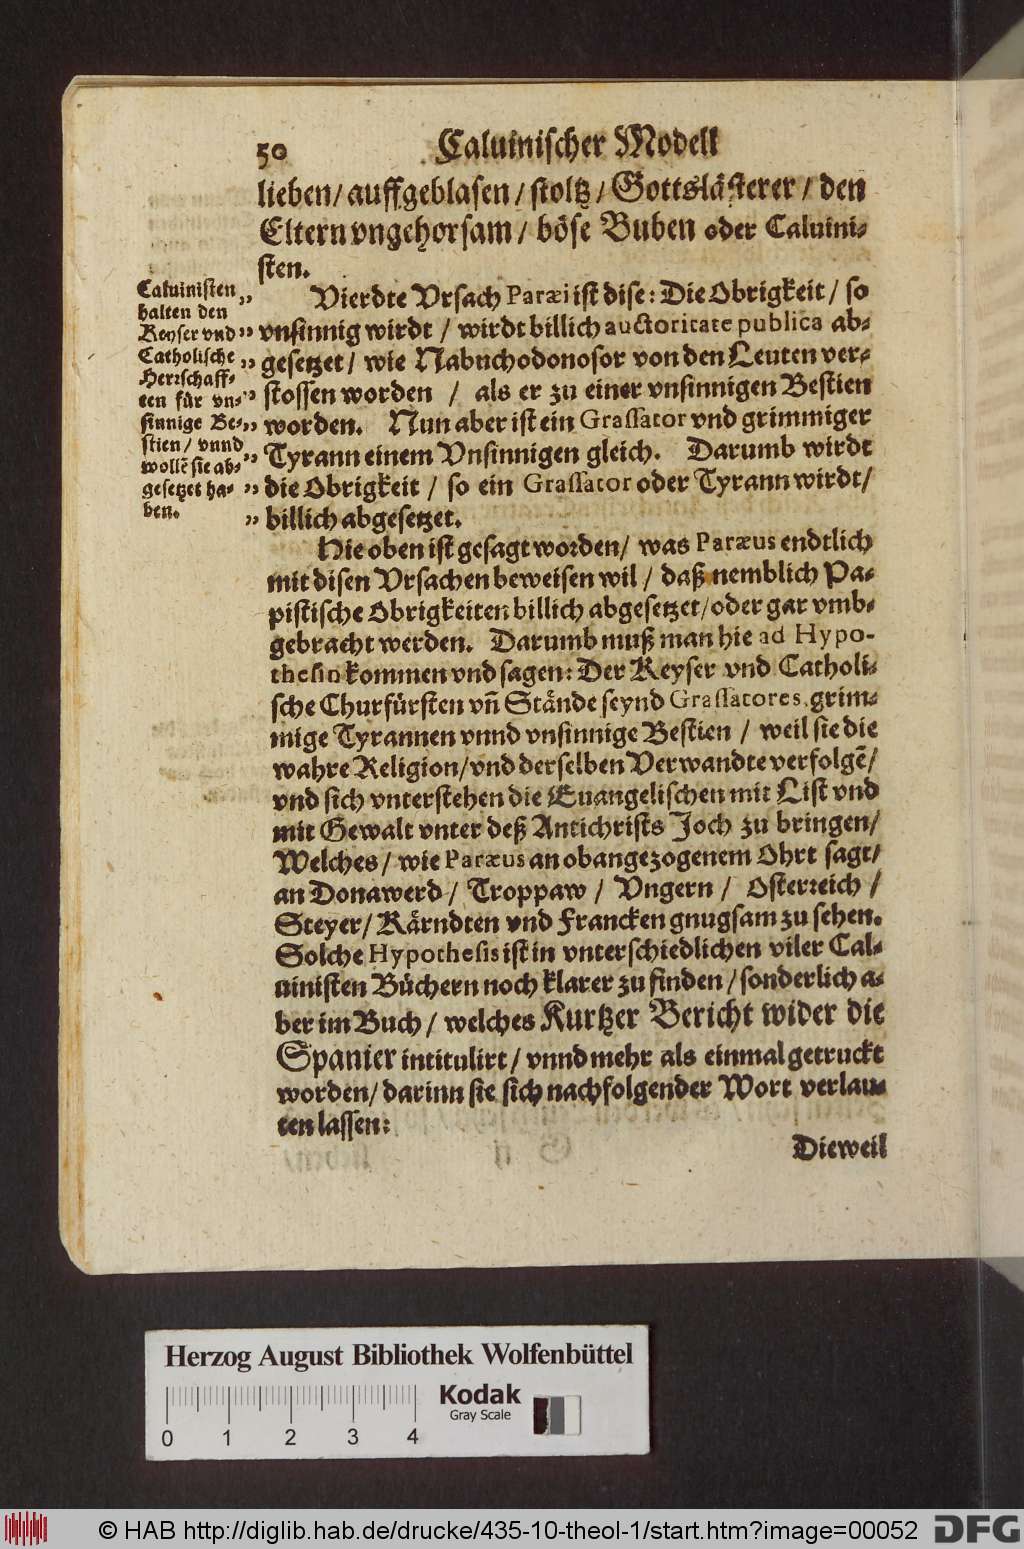 50 Caluinischer Modell
lieben/ auffgeblasen/ stoltz/ Gottslästerer/ den
Eltern vngehorsam/ böse Buben oder Caluini-
sten.
Vierdte Vrsach Paræi ist dise: Die Obrigkeit/ so
„ vnsinnig wirdt/ wirdt billich auctoritate publica ab-
„ gesetzet/ wie Nabuchodonosor von den Leuten ver-
„ stossen worden/ als er zu einer vnsinnigen Bestien
„ worden. Nun aber ist ein Grassator vnd grimmiger
„ Tyrann einem Vnsinnigen gleich. Darumb wirdt
„ die Obrigkeit/ so ein Grassator oder Tyrann wirdt/
„ billich abgesetzet.
Caluinisten „
halten den
Keyser vnd
Catholische
Herrschaff-
ten für vn-
sinnige Be-
stien/ vnnd
wollẽ sie ab-
gesetzet ha-
ben.
Hie oben ist gesagt worden/ was Paræus endtlich
mit disen Vrsachen beweisen wil/ daß nemblich Pa-
pistische Obrigkeiten billich abgesetzet/ oder gar vmb-
gebracht werden. Darumb muß man hie ad Hypo-
thesin kommen vnd sagen: Der Keyser vnd Catholi-
sche Churfürsten vñ Stände seynd Grassatores, grim-
mige Tyrannen vnnd vnsinnige Bestien/ weil sie die
wahre Religion/ vnd derselben Verwandte verfolgẽ/
vnd sich vnterstehen die Euangelischen mit List vnd
mit Gewalt vnter deß Antichrists Joch zu bringen/
Welches/ wie Paræus an obangezogenem Ohrt sagt/
an Donawerd/ Troppaw/ Vngern/ Osterreich/
Steyer/ Kärndten vnd Francken gnugsam zu sehen.
Solche Hypothesis ist in vnterschiedlichen viler Cal-
uinisten Büchern noch klarer zu finden/ sonderlich a-
ber im Buch/ welches Kurtzer Bericht wider die
Spanier intitulirt/ vnnd mehr als einmal getruckt
worden/ darinn sie sich nachfolgender Wort verlau-
ten lassen:
Dieweil
Herzog August Bibliothek Wolfenbüttel
Kodak
Gray Scale
0 1 2 3 4
© HAB http://diglib.hab.de/drucke/435-10-theol-1/start.htm?image=00052
DFG